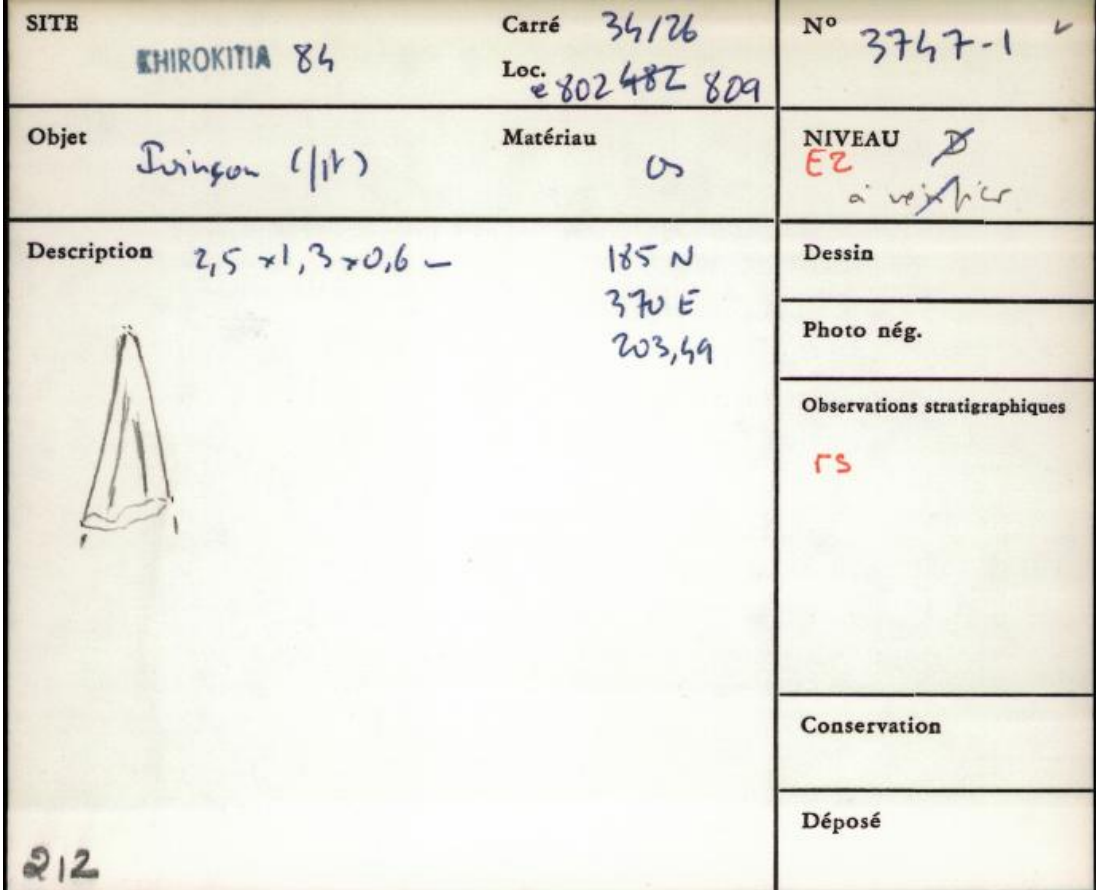 SITE
KHIROKITIA 84
Carré 34/26
Loc. e 802 482 809
N° 3747-1
Objet
Poinçon (fgt)
Matériau
os
NIVEAU D
E2
à vérifier
Description 2,5 x1,3x0,6 -
185 N
370 E
203,49
Dessin
Photo nég.
Observations stratigraphiques
rs
Conservation
Déposé
212